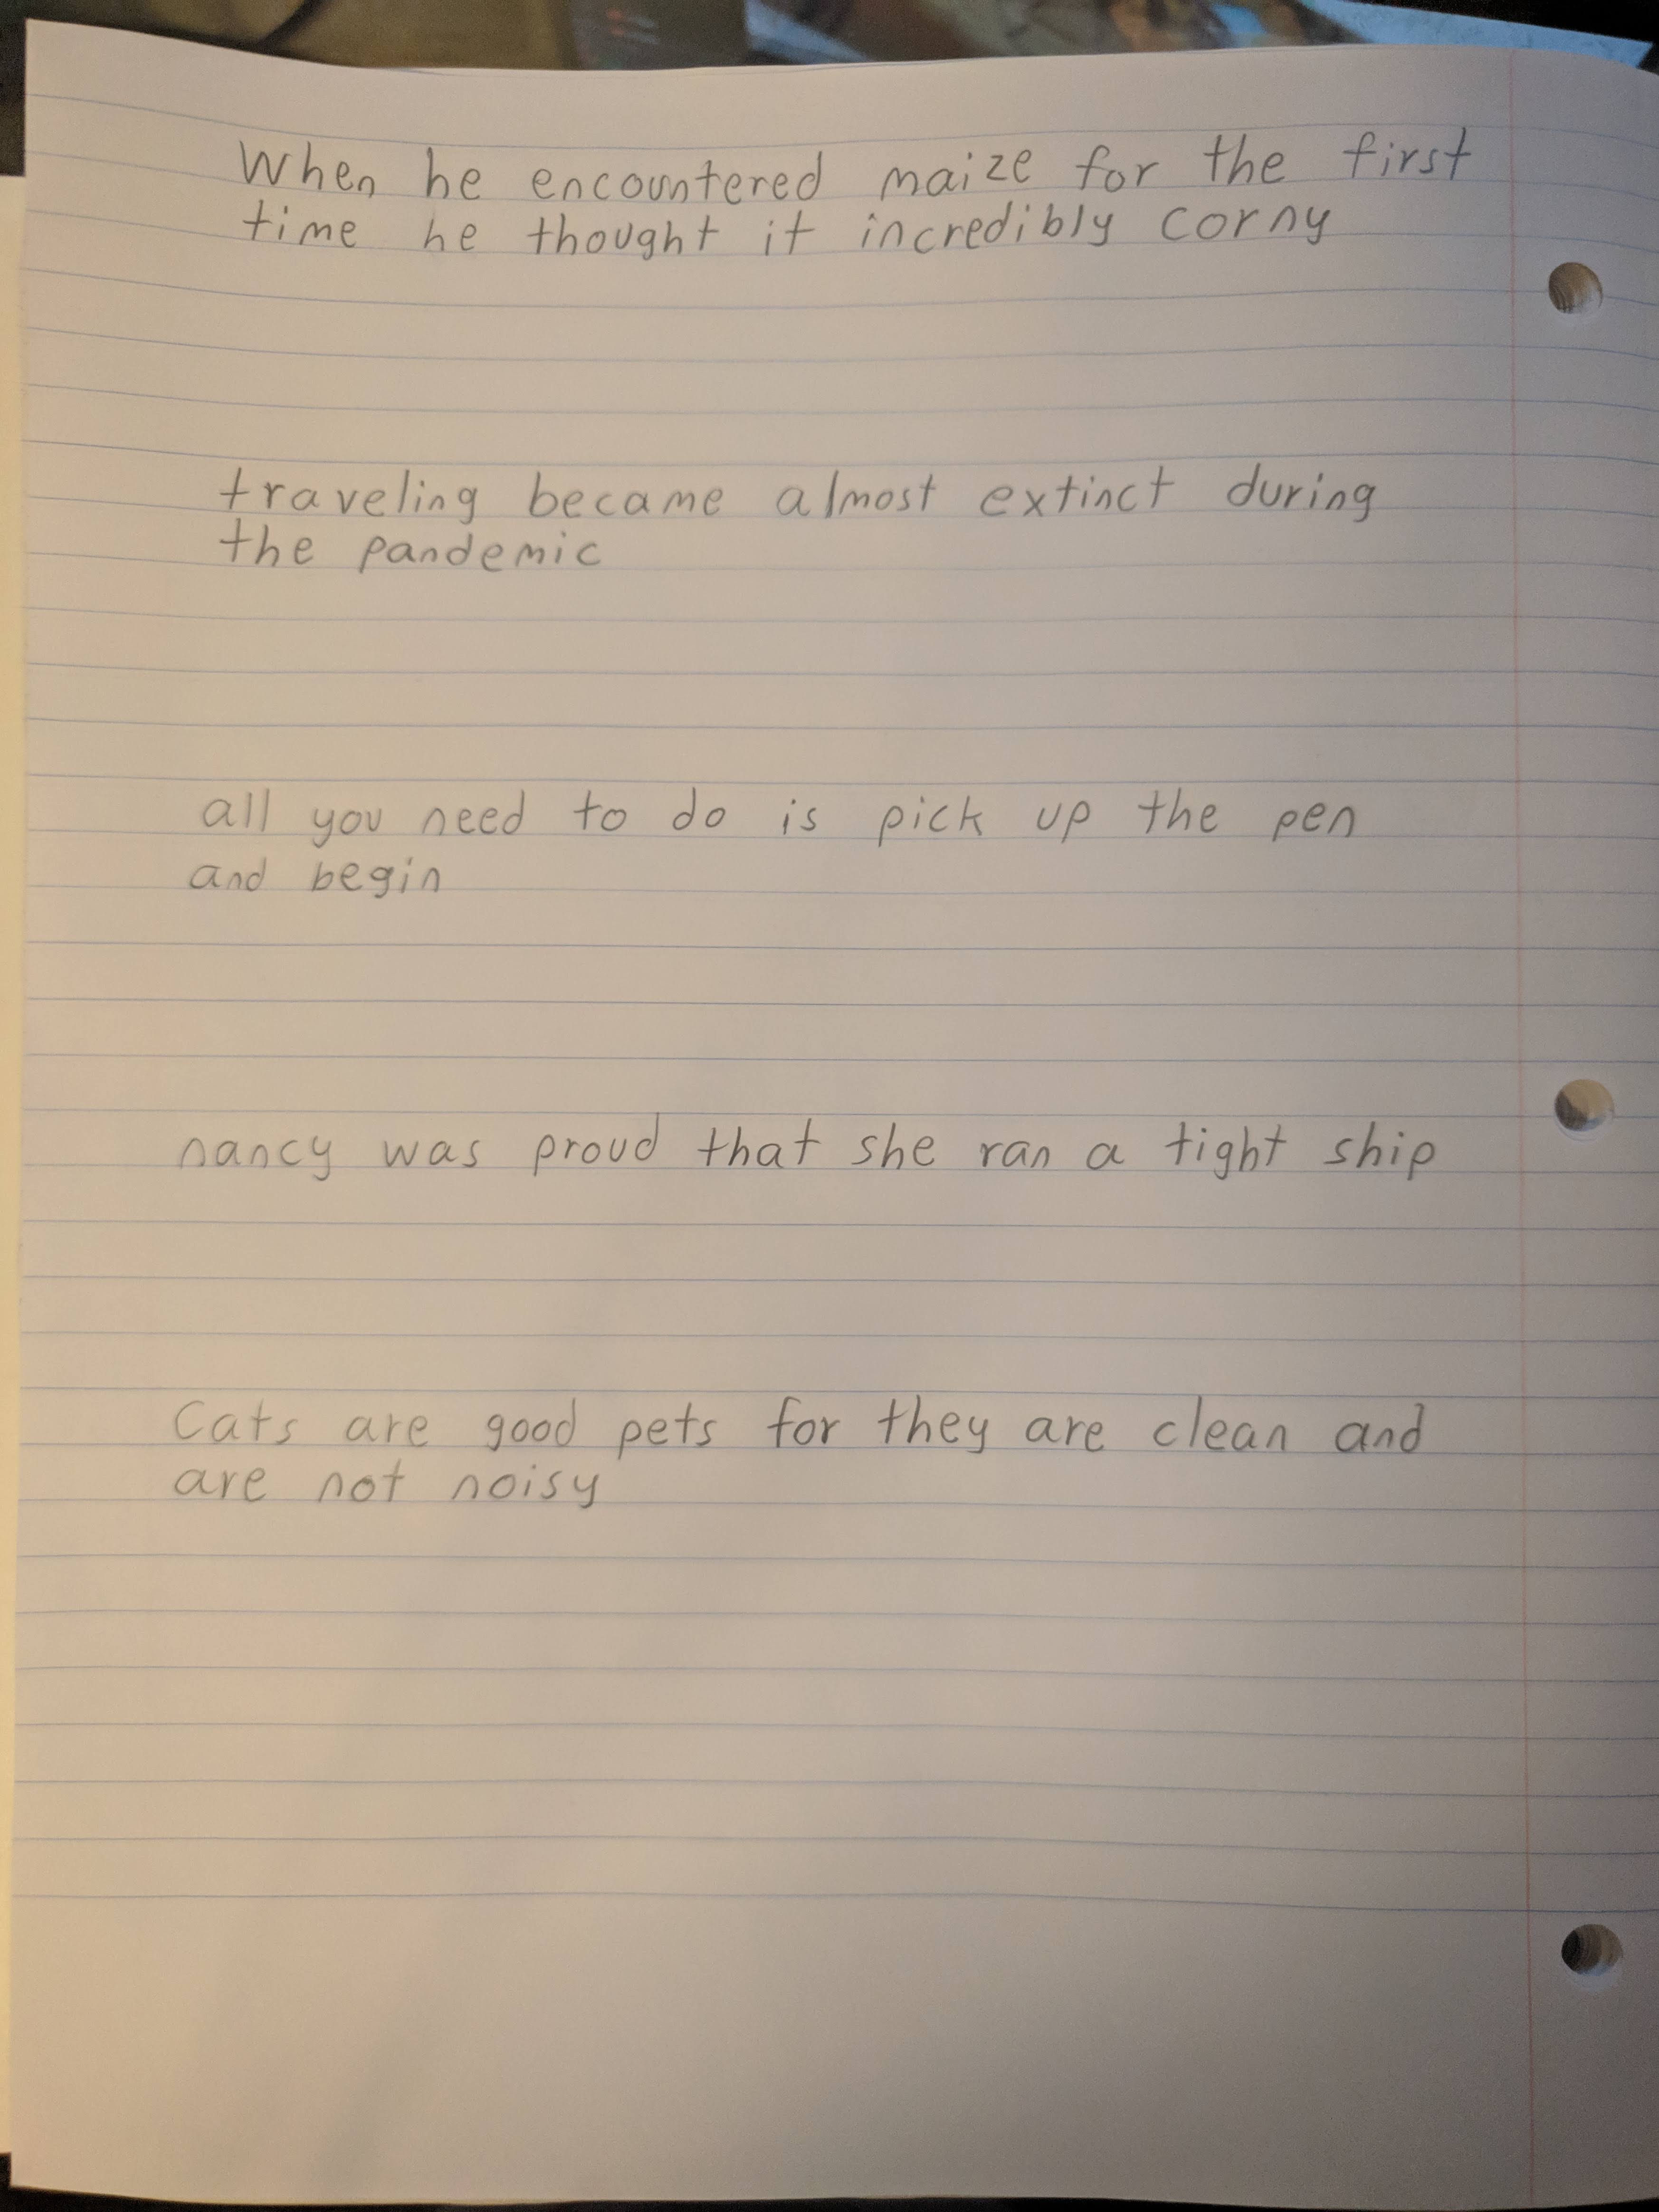 When he encountered maize for the first
time he thought it incredibly corny
traveling became almost extinct during
the pandemic
all you need to do is pick up the pen
and begin
nancy was proud that she ran a tight ship
Cats are good pets for they are clean and
are not noisy